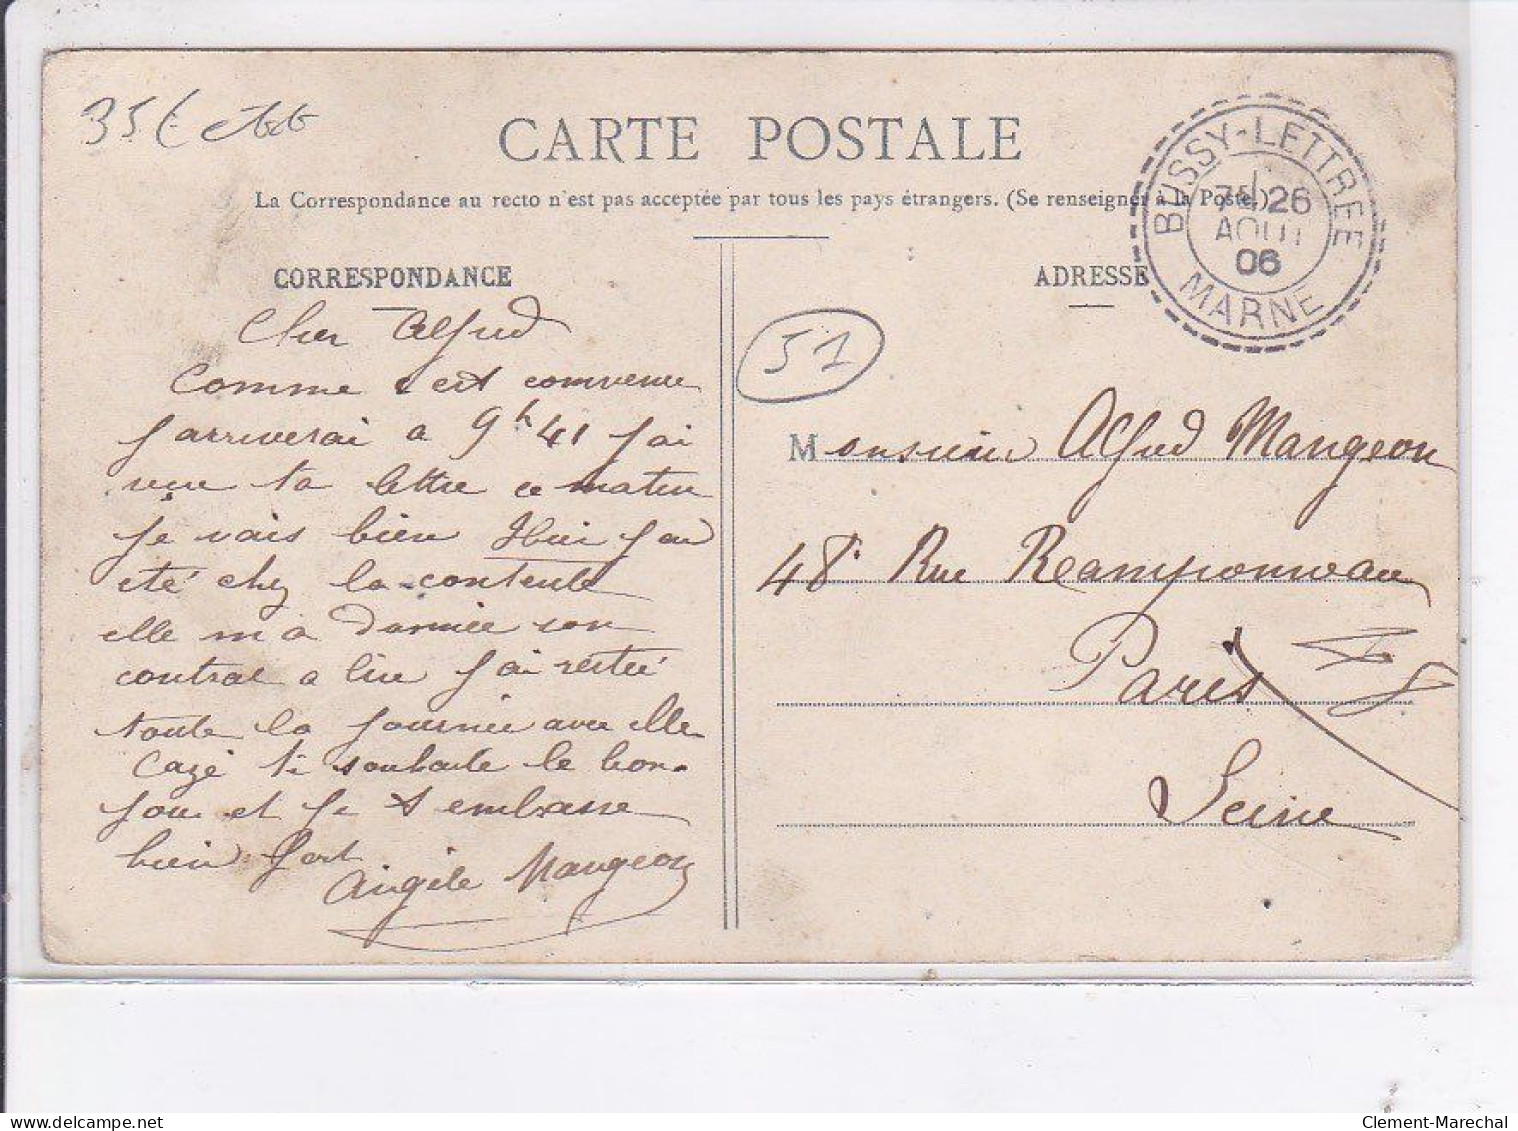 35 €
CARTE POSTALE
La Correspondance au recto n'est pas acceptée par tous les pays étrangers. (Se renseigner à la Poste.)
BUSSY-LETTRÉE
7 26
AOUT
06
MARNE
CORRESPONDANCE
ADRESSE
51
Cher Alfred
Comme s est convenue
j arriverai a 9h 41 j ai
reçu ta lettre ce matin
je vais bien Hier j ai
été chez la
elle m a donnée son
contrat a lire j ai restée
toute la journée avec elle
te souhaite le bon-
jour et je t embrasse
bien fort
Angèle Mangeon
Monsieur Alfred Mangeon
48 Rue Reamponneau
Paris
Seine
www.delcampe.net
Clement-Marechal